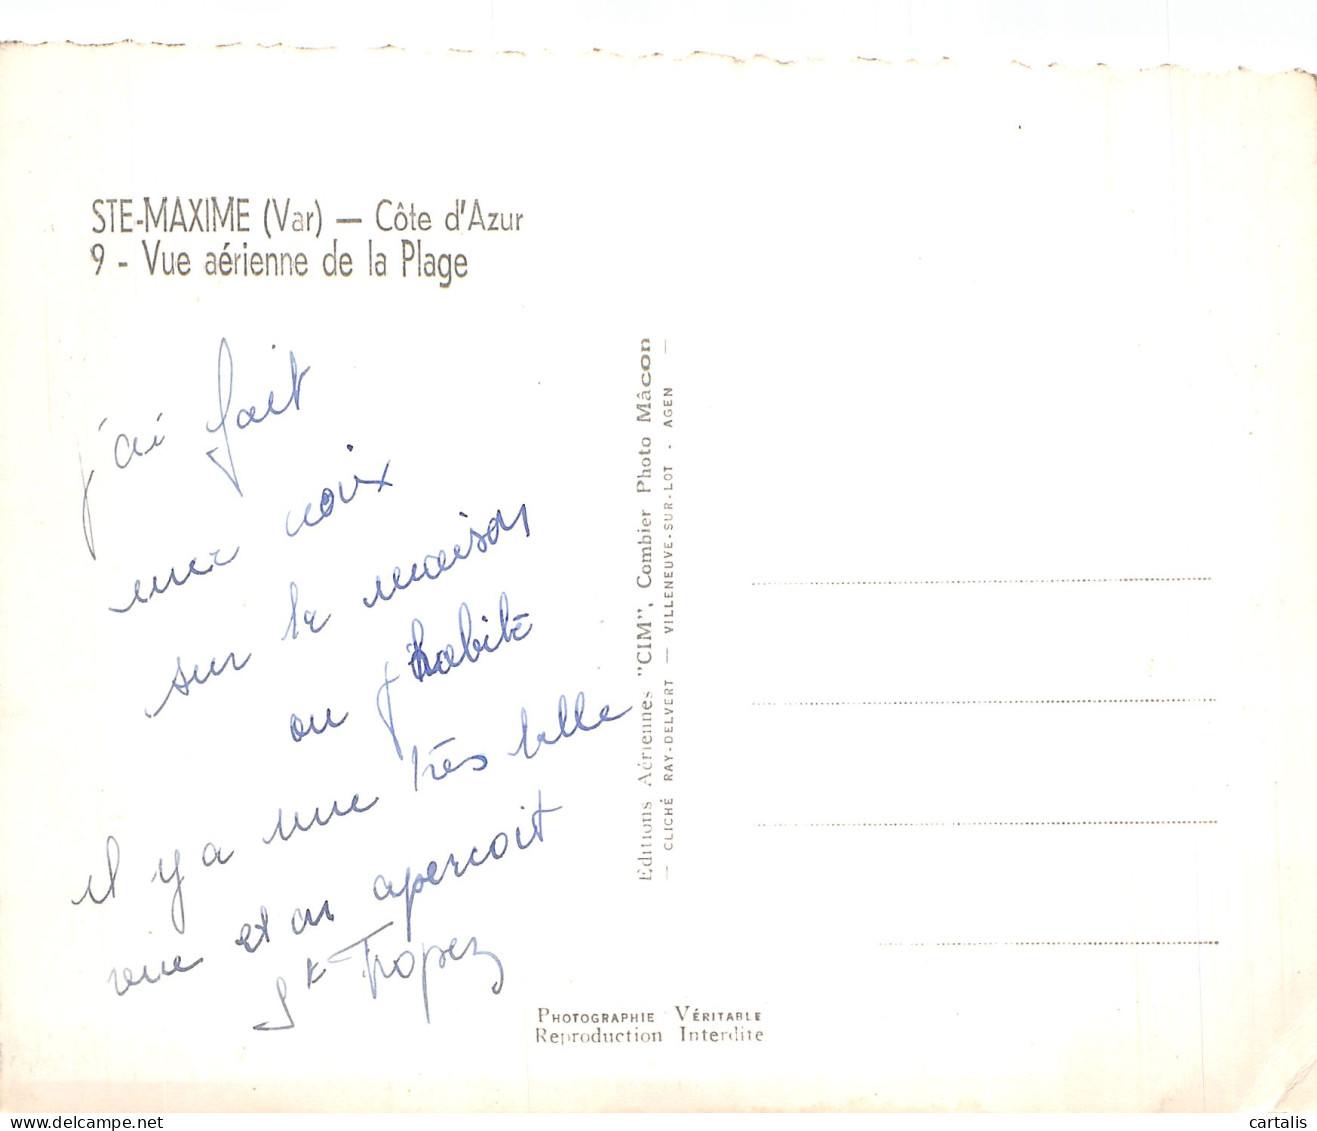 STE-MAXIME (Var) — Côte d'Azur
9 - Vue aérienne de la Plage
j'ai fait
une croix
sur la maison
ou j'habite
il y a une très belle
vue et on apercoit
St Tropez
Editions Aériennes "CIM", Combier Photo Mâcon
— CLICHÉ RAY-DELVERT — VILLENEUVE-SUR-LOT - AGEN —
PHOTOGRAPHIE VÉRITABLE
Reproduction Interdite
delcampe.net
cartalis